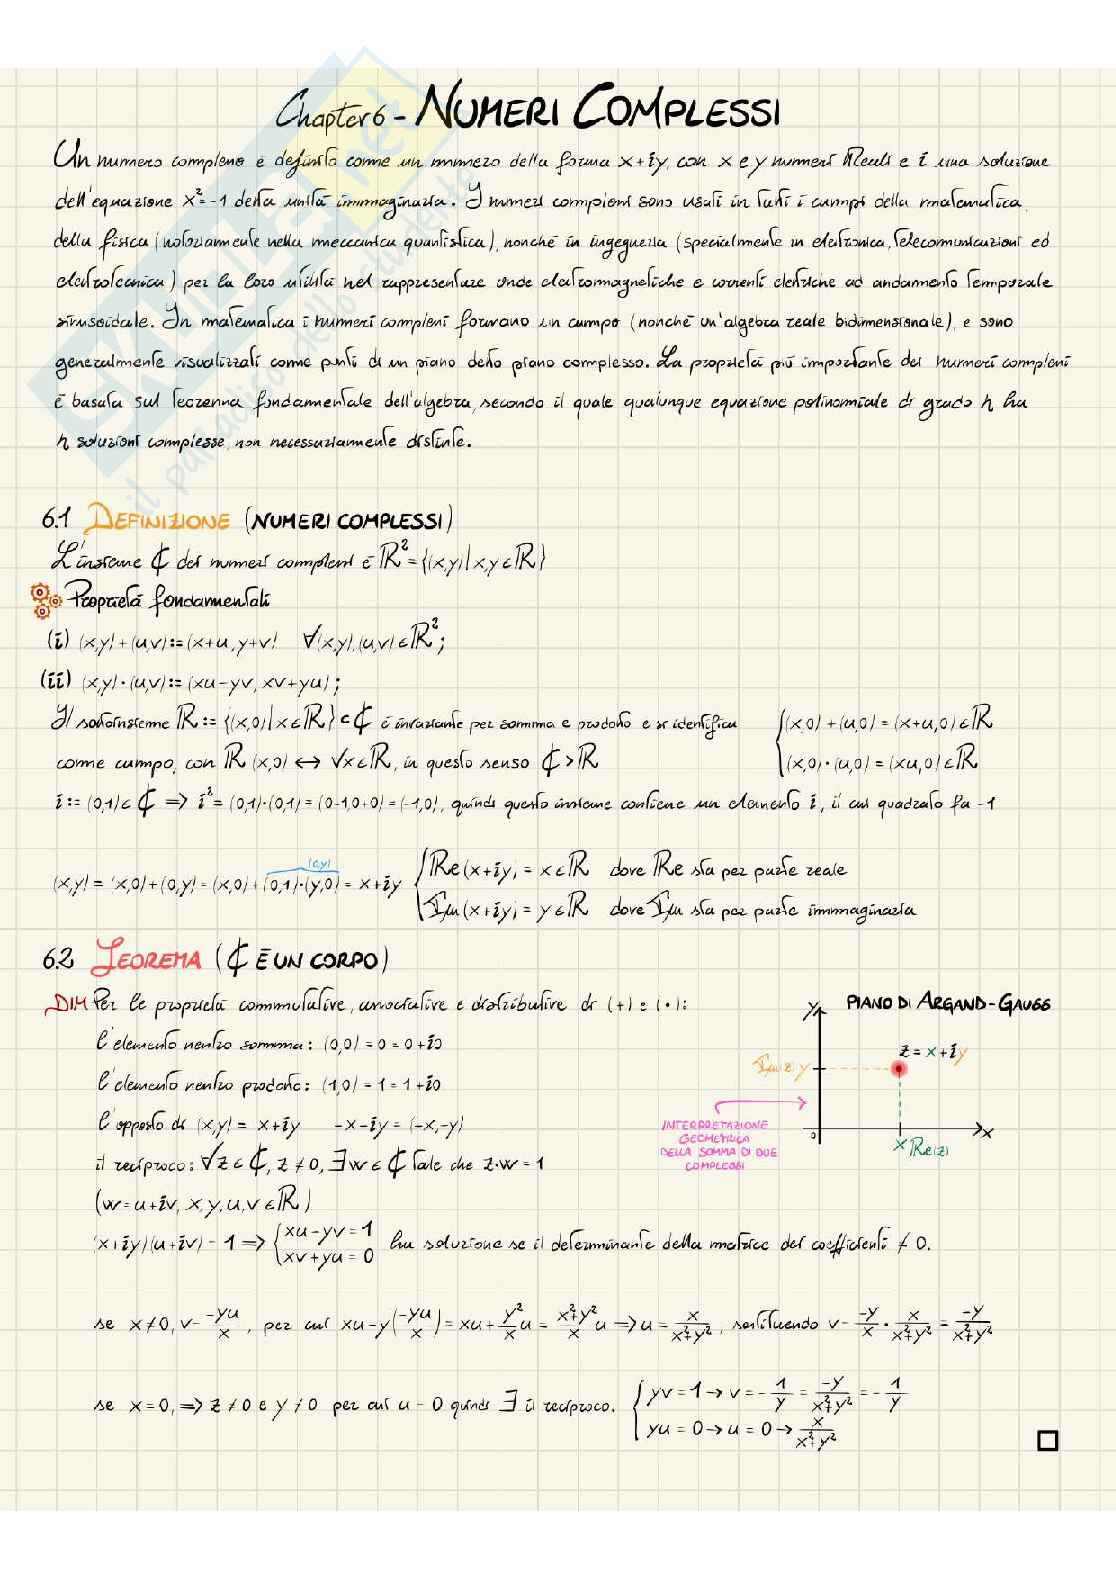 Chapter 6 - NUMERI COMPLESSI
Un numero complesso è definito come un numero della forma x+iy, con x e y numeri Reali e i una soluzione
dell'equazione x²=-1 detta unità immaginaria. I numeri complessi sono usati in tutti i campi della matematica,
della fisica (notoriamente nella meccanica quantistica), nonché in ingegneria (specialmente in elettronica, telecomunicazioni ed
elettrotecnica) per la loro utilità nel rappresentare onde elettromagnetiche e correnti elettriche ad andamento temporale
sinusoidale. In matematica i numeri complessi formano un campo (nonché un'algebra reale bidimensionale), e sono
generalmente visualizzati come punti di un piano detto piano complesso. La proprietà più importante dei numeri complessi
è basata sul teorema fondamentale dell'algebra, secondo il quale qualunque equazione polinomiale di grado n ha
n soluzioni complesse, non necessariamente distinte.
6.1 DEFINIZIONE (NUMERI COMPLESSI)
L'insieme ℂ dei numeri complessi è ℝ²={(x,y)|x,y∈ℝ}
Proprietà fondamentali
(i) (x,y)+(u,v):=(x+u,y+v) ∀(x,y),(u,v)∈ℝ²;
(ii) (x,y)·(u,v):=(xu-yv, xv+yu);
Il sottoinsieme ℝ:={(x,0)|x∈ℝ}⊂ℂ è invariante per somma e prodotto e si identifica
come campo, con ℝ (x,0) ↔ ∀x∈ℝ, in questo senso ℂ>ℝ
{(x,0)+(u,0)=(x+u,0)∈ℝ
(x,0)·(u,0)=(xu,0)∈ℝ
i:=(0,1)∈ℂ ⟹ i²=(0,1)·(0,1)=(0-1,0+0)=(-1,0), quindi questo insieme contiene un elemento i, il cui quadrato fa -1
(0,y)
(x,y)=(x,0)+(0,y)=(x,0)+(0,1)·(y,0)=x+iy
{Re(x+iy)=x∈ℝ dove Re sta per parte reale
Im(x+iy)=y∈ℝ dove Im sta per parte immaginaria
6.2 TEOREMA (ℂ È UN CORPO)
DIM Per le proprietà commutative, associative e distributive di (+) e (·):
l'elemento neutro somma: (0,0)=0=0+i0
l'elemento neutro prodotto: (1,0)=1=1+i0
l'opposto di (x,y)=x+iy -x-iy=(-x,-y)
il reciproco: ∀z∈ℂ, z≠0, ∃w∈ℂ tale che z·w=1
(w=u+iv, x,y,u,v∈ℝ)
PIANO DI ARGAND-GAUSS
y
z=x+iy
Im(z) y
INTERPRETAZIONE
GEOMETRICA
DELLA SOMMA DI DUE
COMPLESSI
0
x
x Re(z)
(x+iy)(u+iv)=1 ⟹ {xu-yv=1
xv+yu=0 ha soluzione se il determinante della matrice dei coefficienti ≠0.
se x≠0, v=-yu/x, per cui xu-y(-yu/x)=xu+y²/x u=x²+y²/x u ⟹ u=x/x²+y², sostituendo v=-y/x·x/x²+y²=-y/x²+y²
se x=0, ⟹ z≠0 e y≠0 per cui u=0 quindi ∃ il reciproco. {yv=1→v=-1/y=-y/x²+y²=-1/y
yu=0→u=0→x/x²+y²